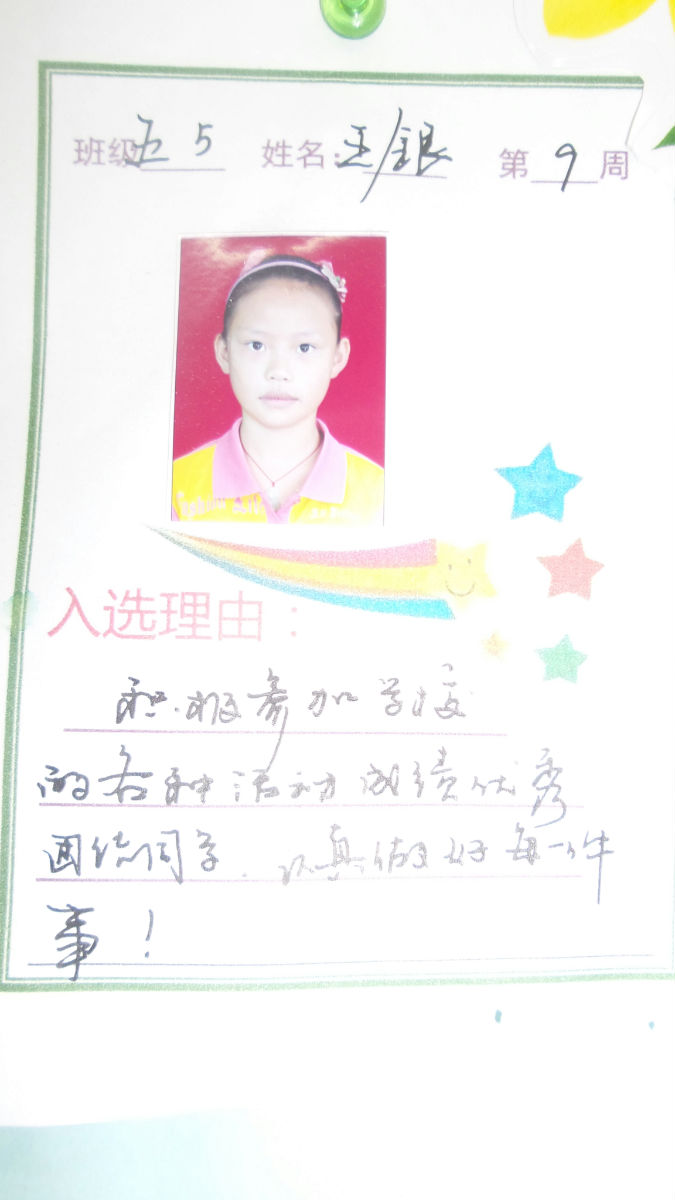 班级五5 姓名：王银 第9周
入选理由：
积极参加学校
的各种活动成绩优秀
团结同学.认真做好每一件
事！